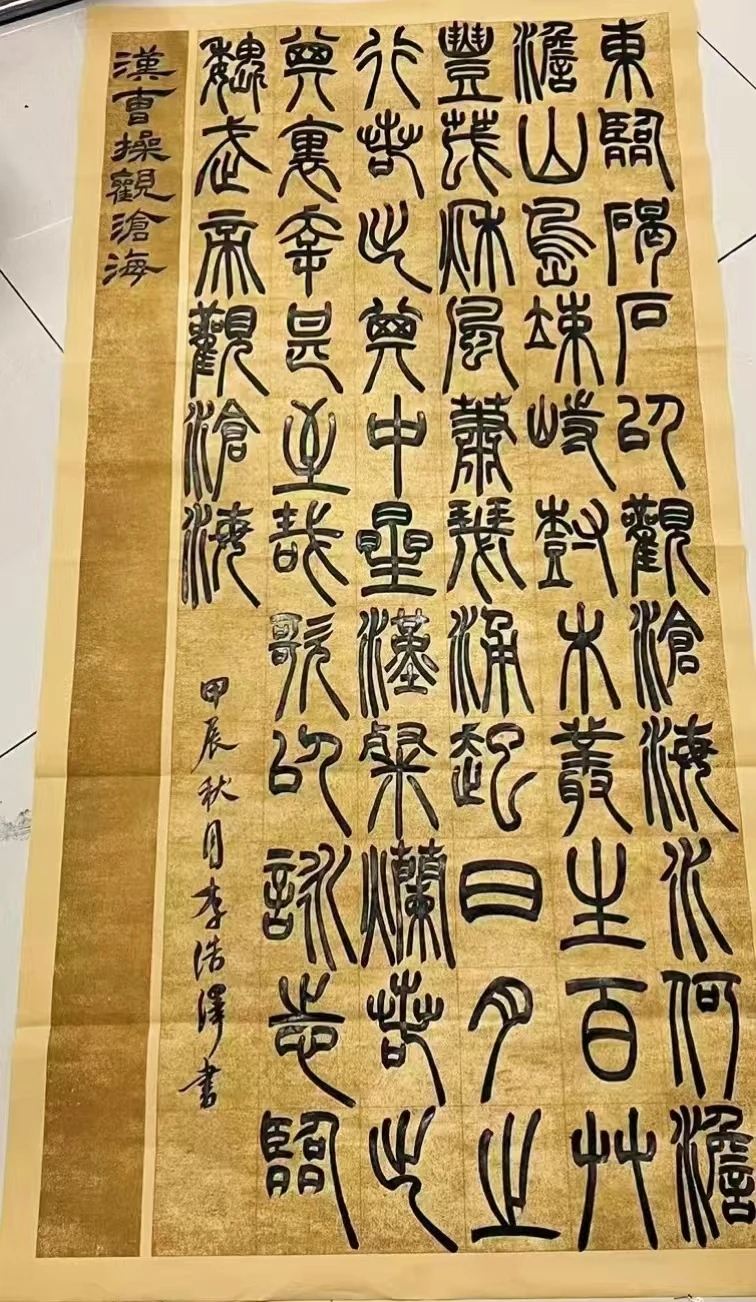 東臨碣石以觀滄海水何澹
澹山島竦峙樹木叢生百艸
豐茂秋風蕭瑟涌起日月之
行若出其中星漢粲爛若出
其裏幸甚至哉歌以詠志臨
魏武帝觀滄海
甲辰秋月李浩澤書
漢曹操觀滄海